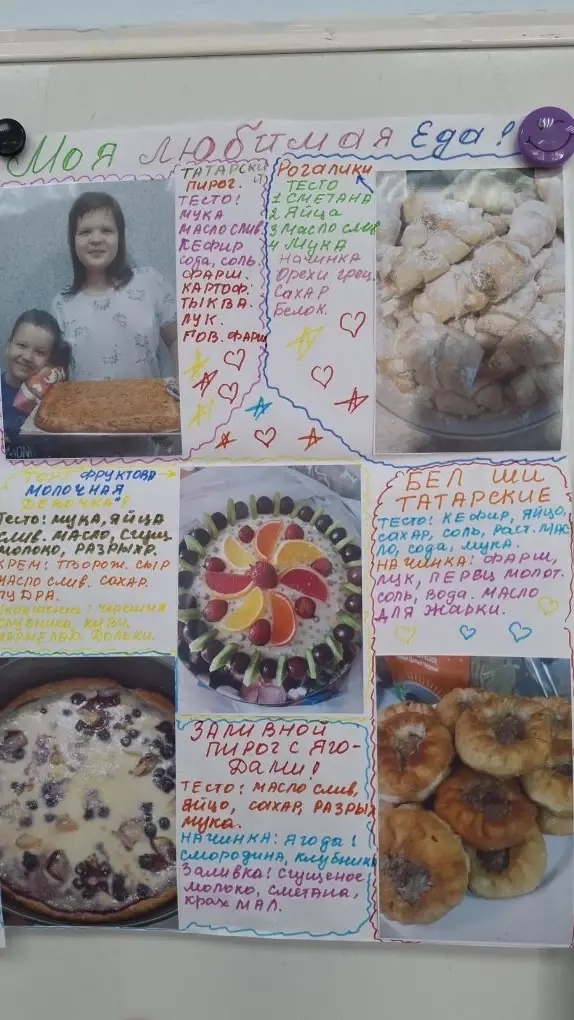 Моя любимая Еда!
ТАТАРСКИЙ
ПИРОГ.
ТЕСТО:
МУКА
МАСЛО СЛИВ
КЕФИР
СОДА, СОЛЬ.
ФАРШ.
КАРТОФ.
ТЫКВА.
ЛУК.
ГОВ. ФАРШ
РОГАЛИКИ
ТЕСТО
1 СМЕТАНА
2 ЯЙЦА
3 МАСЛО СЛИВ
4 МУКА
НАЧИНКА
ОРЕХИ ГРЕЦ.
САХАР
БЕЛОК.
ТОРТ ФРУКТОВА
МОЛОЧНАЯ
ДЕВОЧКА"!
ТЕСТО: МУКА, ЯЙЦА
СЛИВ. МАСЛО, СГУЩ
МОЛОКО, РАЗРЫХР.
КРЕМ: ТВОРОЖ. СЫР
МАСЛО СЛИВ. САХАР.
ПУДРА.
ЧЕРЕШНЯ
КЛУБНИКА, КИВИ,
МАРМЕЛАД ДОЛЬКИ.
БЕЛЯШИ
ТАТАРСКИЕ
ТЕСТО: КЕФИР, ЯЙЦО,
САХАР, СОЛЬ, РАСТ. МАС
ЛО, СОДА, МУКА.
НАЧИНКА: ФАРШ,
ЛУК, ПЕРЕЦ МОЛОТ.
СОЛЬ, ВОДА. МАСЛО
ДЛЯ ЖАРКИ.
ЗАЛИВНОЙ
ПИРОГ С ЯГО-
ДАМИ!
ТЕСТО: МАСЛО СЛИВ,
ЯЙЦО, САХАР, РАЗРЫХ
МУКА.
НАЧИНКА: ЯГОДА!
СМОРОДИНА, КЛУБНИКА
ЗАЛИВКА! СГУЩЕНОЕ
МОЛОКО, СМЕТАНА,
КРАХМАЛ.